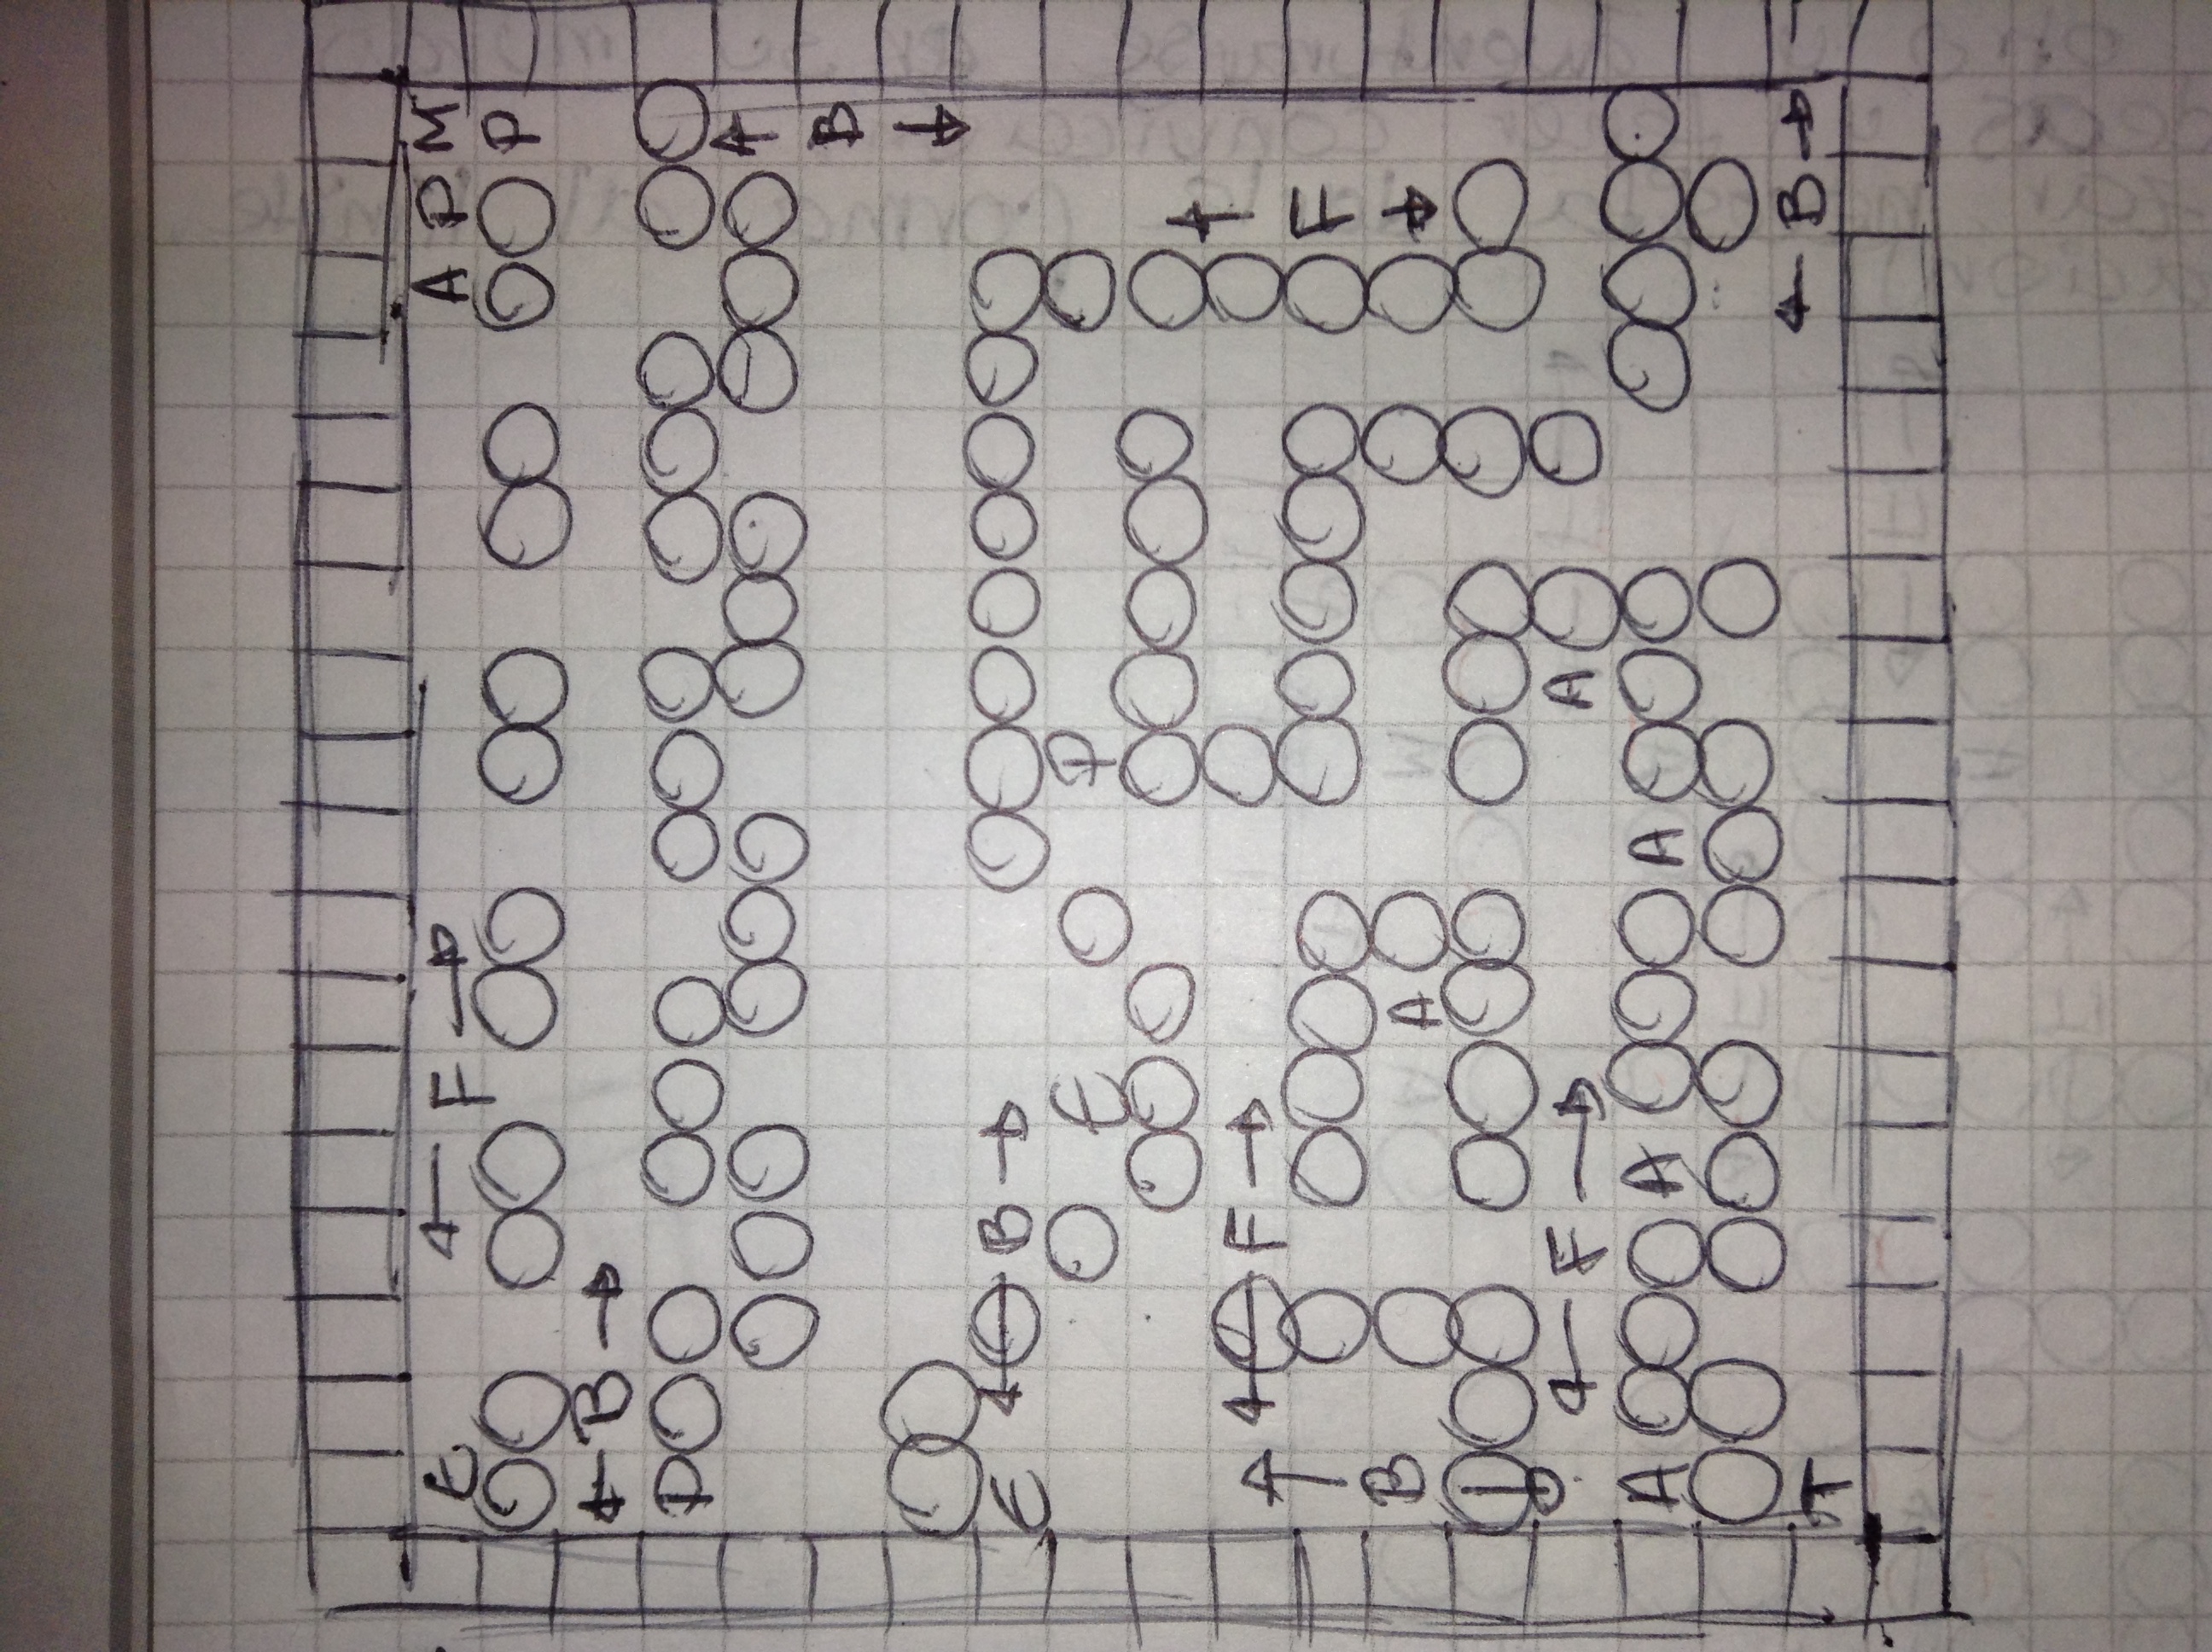 E ← F → A P M
P
← B →
P
↑
B
↓
E ← B →
E P
↑
← F →
↑ F
B ↓
A
↓
← F → A
A A A
← B →
T